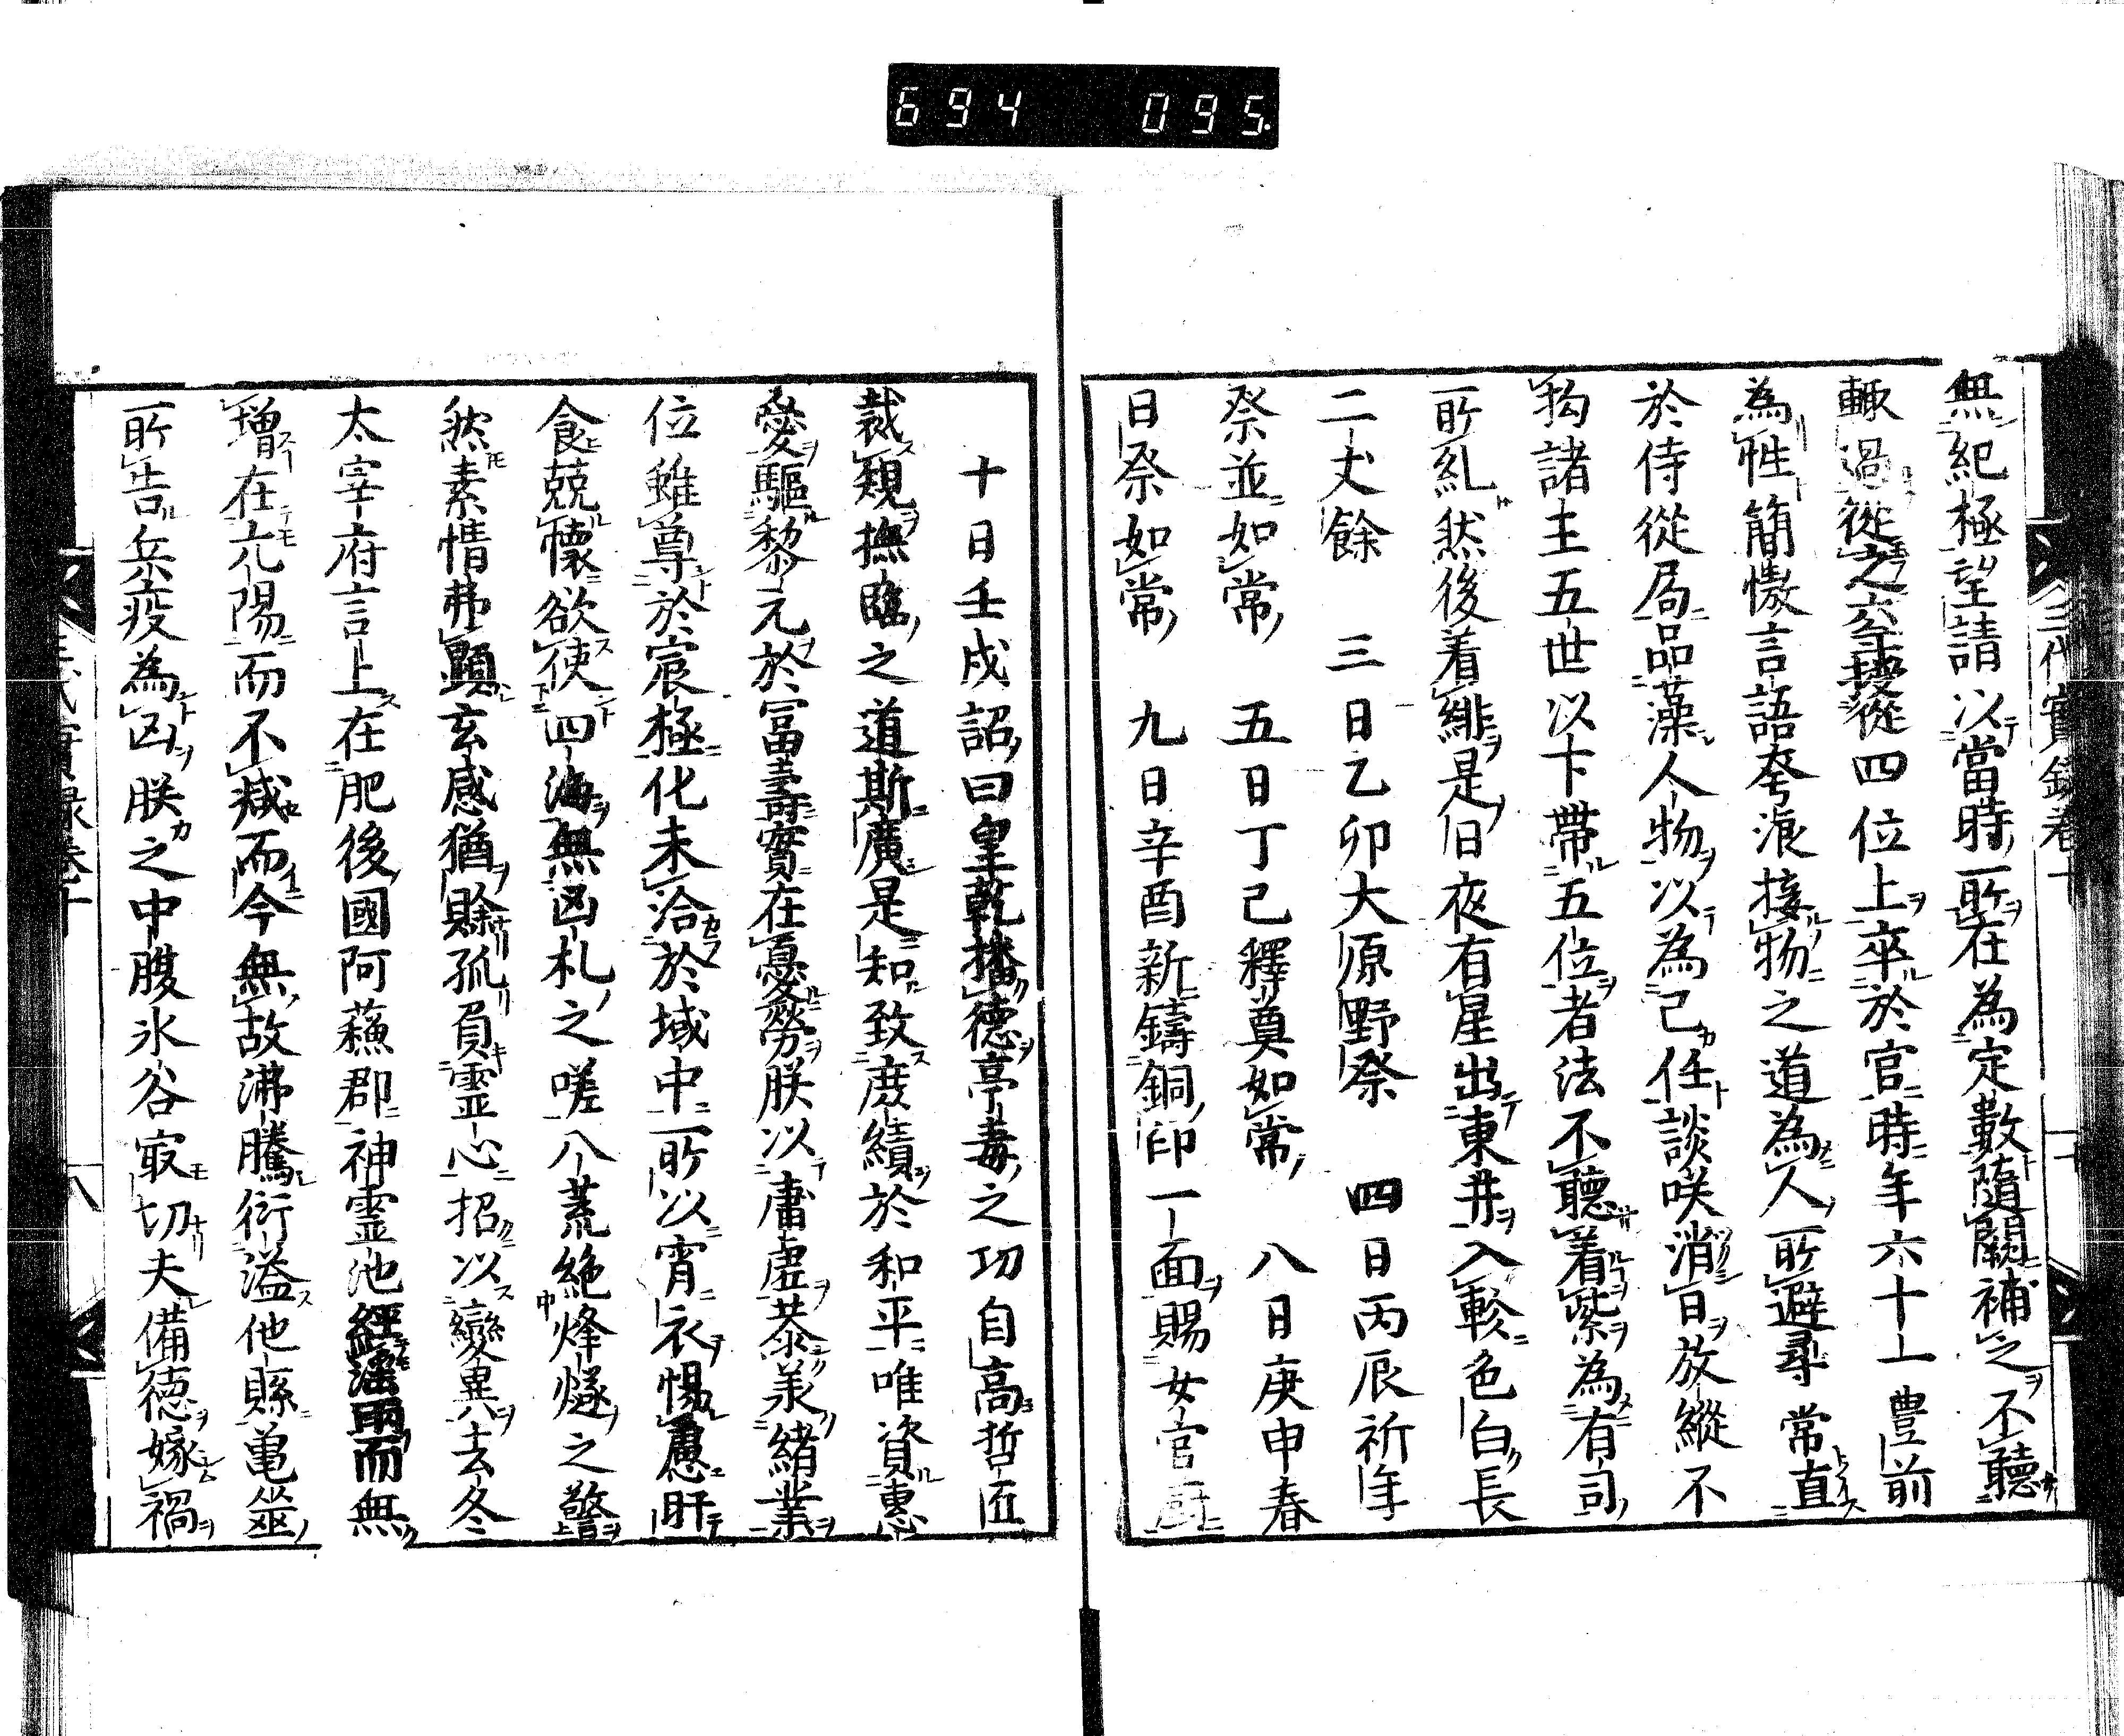 694 095
無紀極望請以當時所在為定數隨闕補之不聽
輙過從之至授從四位上卒於官時年六十一豊前
為性簡慠言語夸浪接物之道為人所避尋常直
於侍從局品藻人物以為己任談咲消日放縱不
拘諸王五世以下帶五位者法不聽着紫為有司
所糺然後着緋是日夜有星出東井入軫色白長
二丈餘 三日乙卯大原野祭 四日丙辰祈年
祭並如常 五日丁己釋奠如常 八日庚申春
日祭如常 九日辛酉新鑄銅印一面賜女官厨
十日壬戌詔曰皇乾播德亭毒之功自高哲后
裁規撫臨之道斯廣是知致庶績於和平唯資惠
愛驅黎元於富壽實在憂勞朕以庸虚恭承緒業
位雖尊於宸極化未洽於域中所以宵衣惕慮旰
食兢懷欲使四海無凶札之嗟八荒絶烽燧之警
然素情弗顯玄感猶賒孤負霊心招以變異去冬
太宰府言上在肥後國阿蘓郡神霊池經淫雨而無
増在亢陽而不减而今無故沸騰衍溢他縣亀筮
所告兵疫為凶朕之中腹氷谷㝡切夫備徳嫁禍
三代實録卷十
八